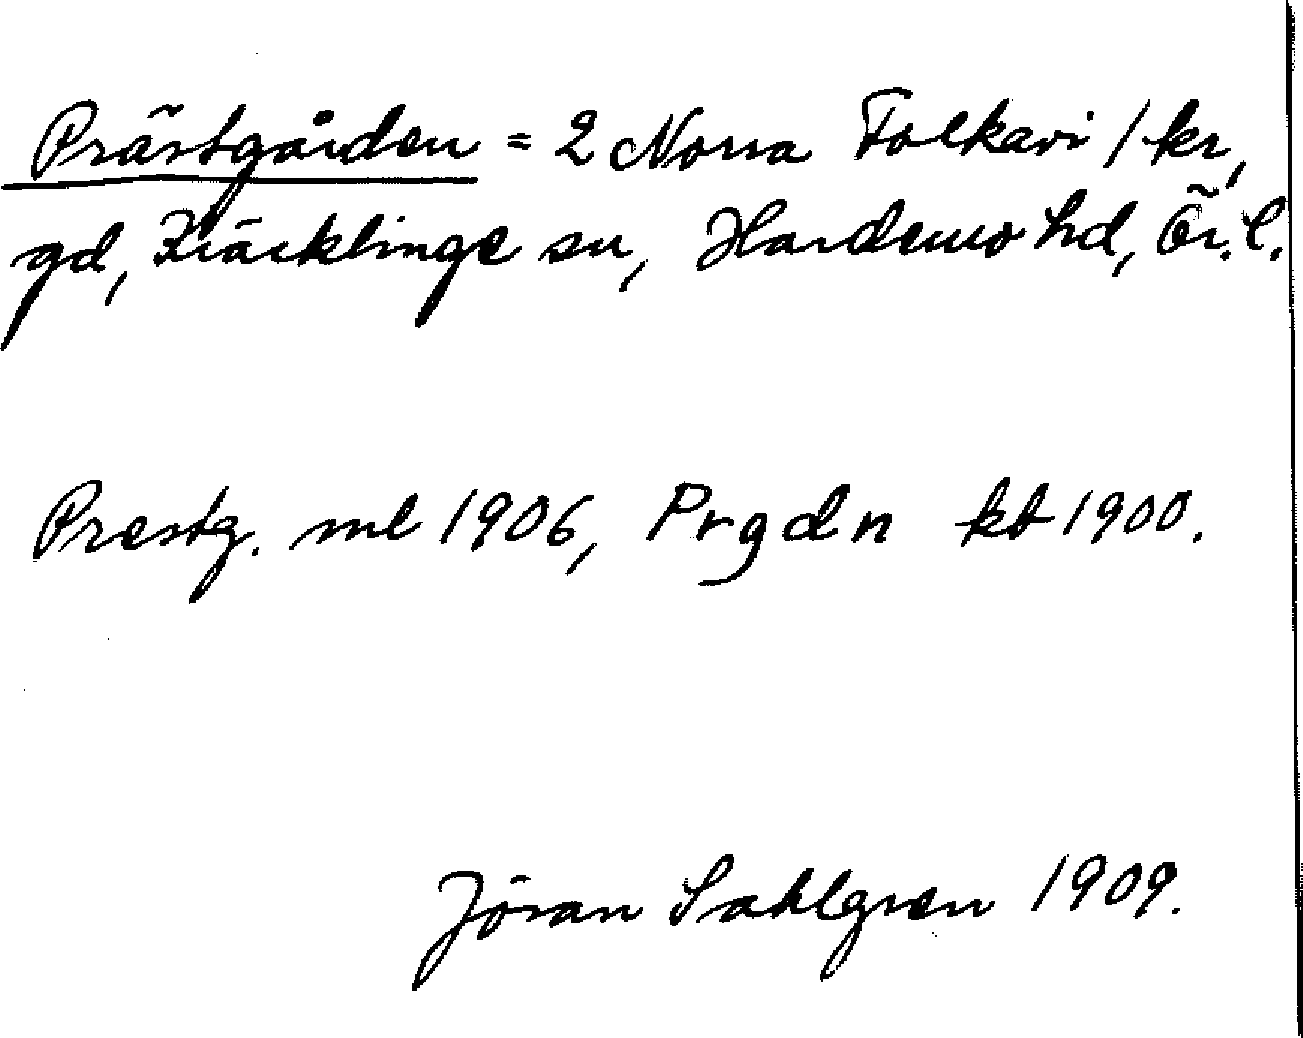 Prästgården = 2 Norra Folkavi 1 kr,
gd, Kräcklinge sn, Hardemo hd, Ör. l.
Prestg. ml 1906, Prgdn kt 1900.
Jöran Sahlgren 1909.